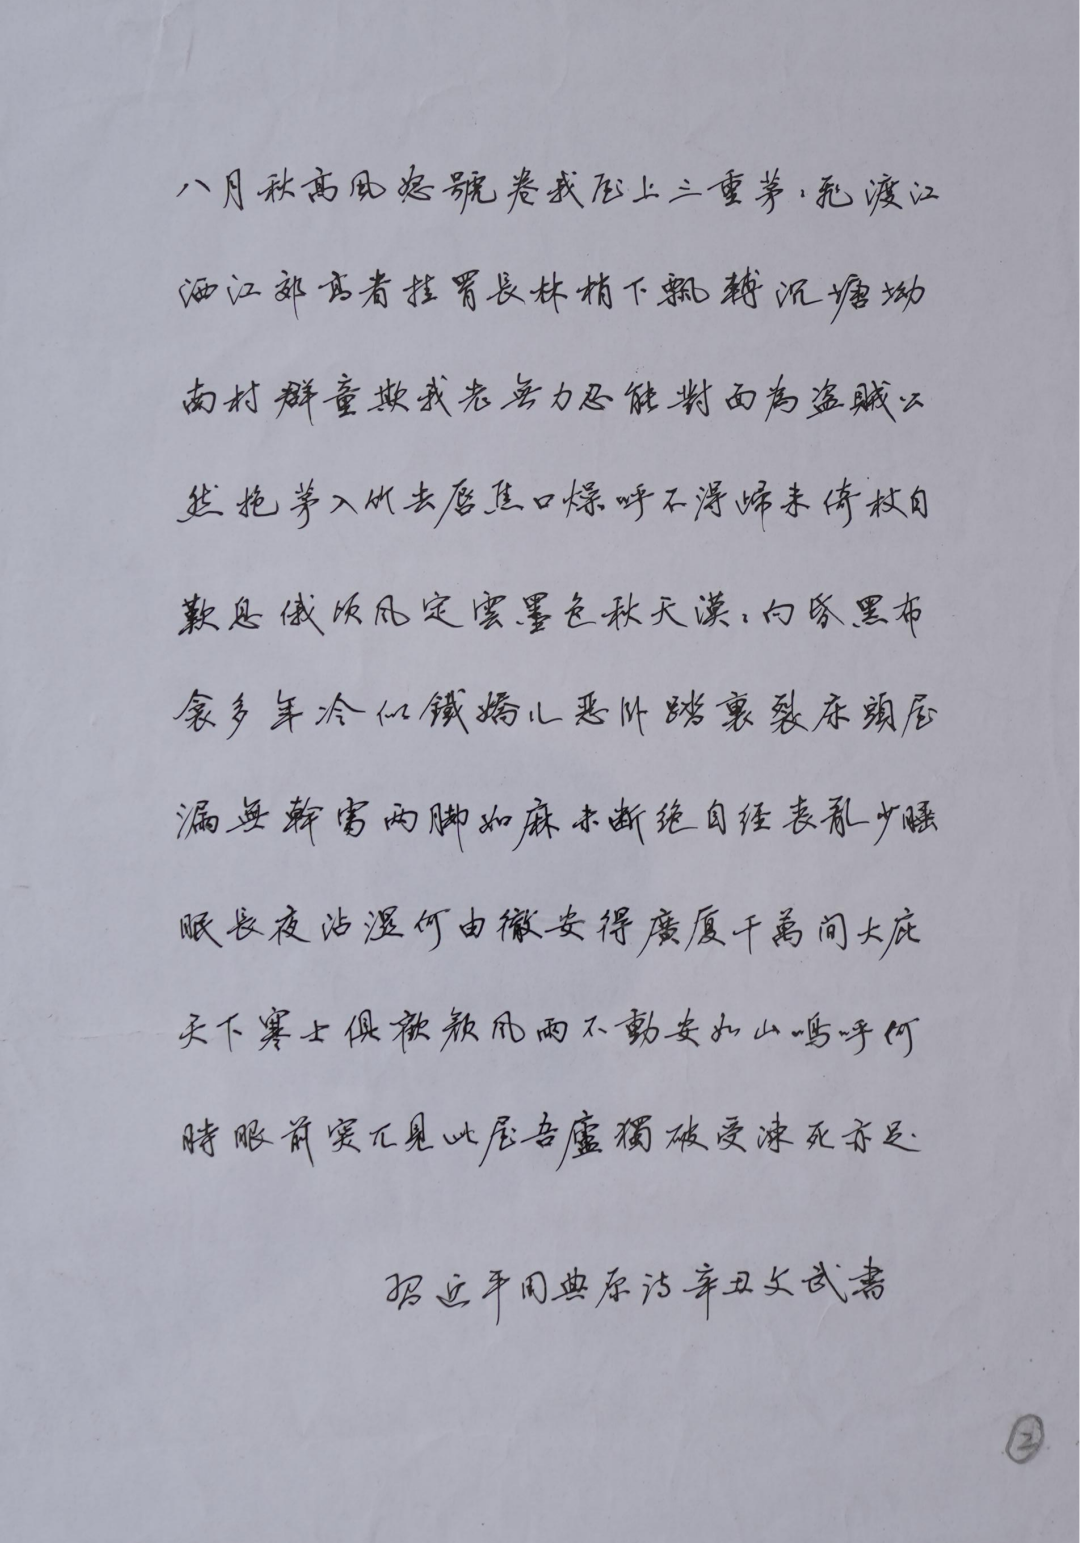 八月秋高風怒號卷我屋上三重茅〻飛渡江
洒江郊高者挂罥長林梢下飄轉沉塘坳
南村群童欺我老無力忍能對面為盗賊公
然抱茅入竹去唇焦口燥呼不得歸来倚杖自
歎息俄頃風定雲墨色秋天漠〻向昏黑布
衾多年冷似鐵嬌儿恶卧踏裏裂床頭屋
漏無幹處雨脚如麻未断绝自经丧亂少睡
眠長夜沾濕何由徹安得廣厦千萬间大庇
天下寒士俱歡颜風雨不動安如山嗚呼何
時眼前突兀見此屋吾廬獨破受凍死亦足
习近平用典原诗辛丑文武書
2